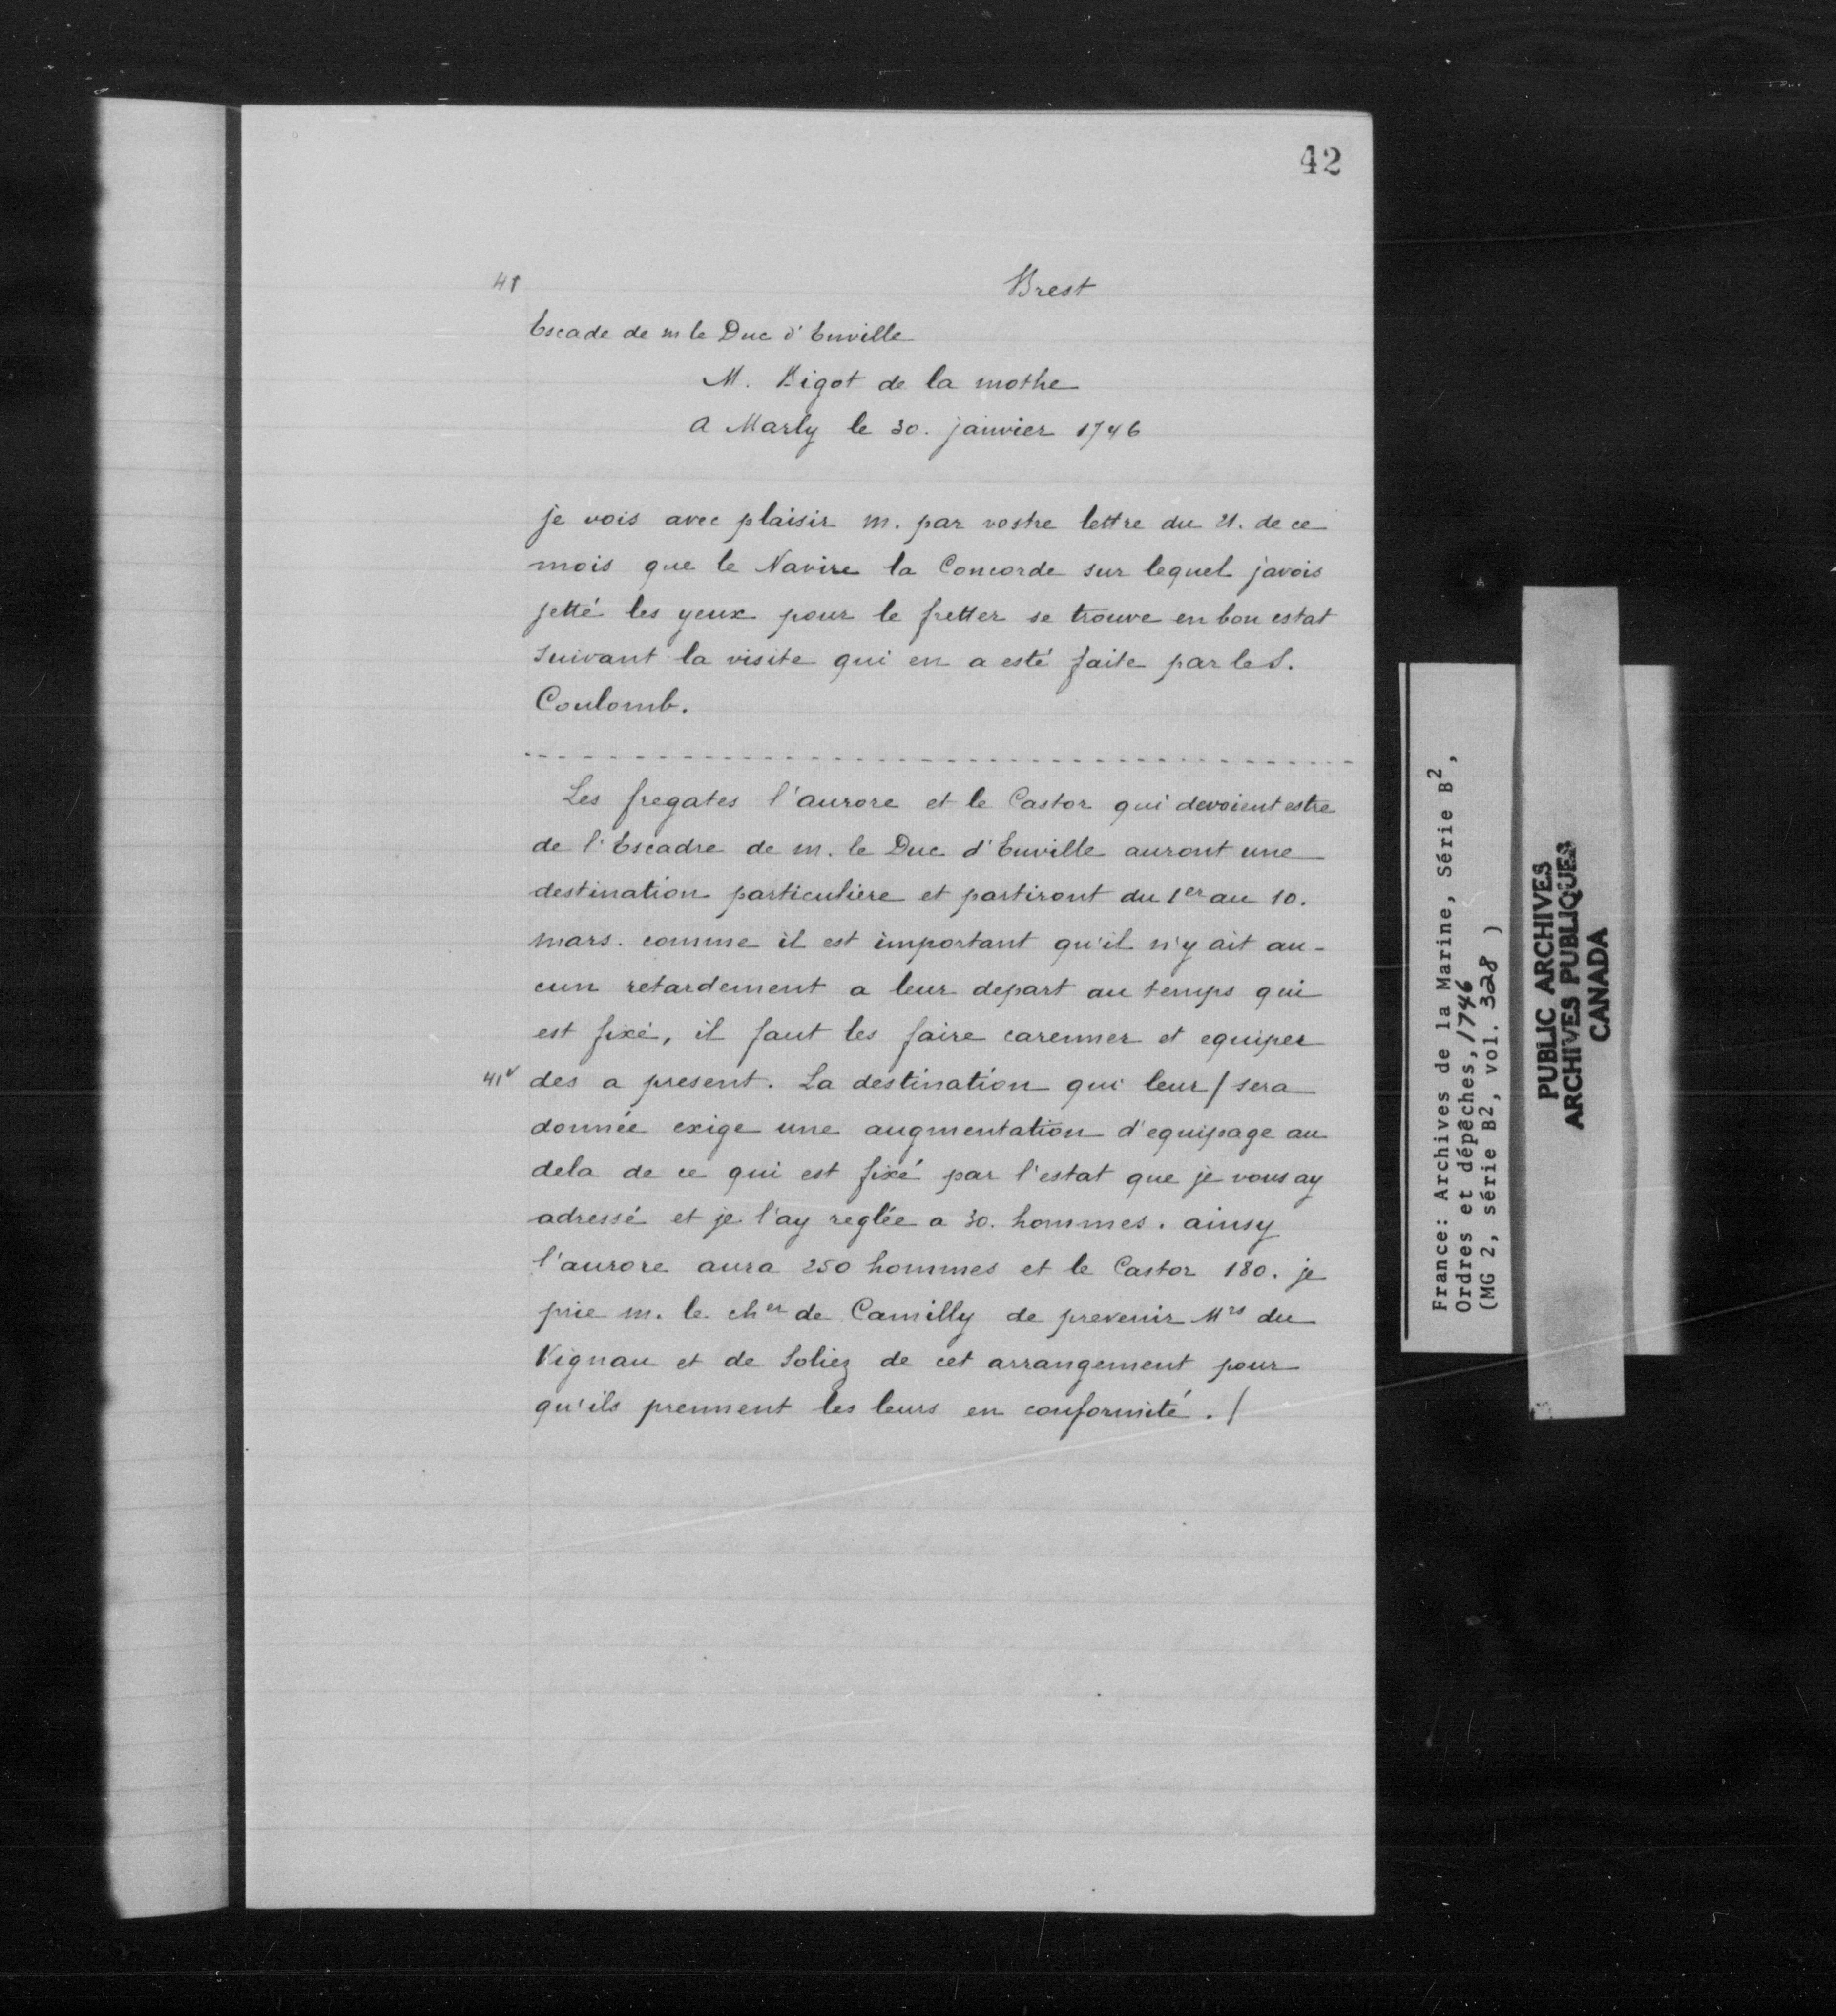 42
41
Brest
Escade de m le Duc d'Enville
M. Bigot de la mothe
a Marly le 30. janvier 1746
je vois avec plaisir m. par vostre lettre du 21. de ce
mois que le Navire la Concorde sur lequel j'avois
jetté les yeux pour le fretter se trouve en bon estat
suivant la visite qui en a esté faite par le S.
Coulomb.
Les fregates l'aurore et le Castor qui devoient estre
de l'Escadre de m. le Duc d'Enville auront une
destination particuliere et partiront du 1er au 10.
mars. comme il est important qu'il n'y ait au-
cun retardement a leur depart au temps qui
est fixé, il faut les faire carenner et equiper
41v des a present. La destination qui leur / sera
donnée exige une augmentation d'equipage au
dela de ce qui est fixé par l'estat que je vous ay
adressé et je l'ay reglée a 30. hommes. ainsy
l'aurore aura 250 hommes et le Castor 180. je
prie m. le cher de Camilly de prevenir Mrs du
Vignau et de Soliez de cet arrangement pour
qu'ils prennent les leurs en conformité. /
France: Archives de la Marine, Série B2,
Ordres et dépêches, 1746
(MG 2, série B2, vol. 328 )
PUBLIC ARCHIVES
ARCHIVES PUBLIQUES
CANADA